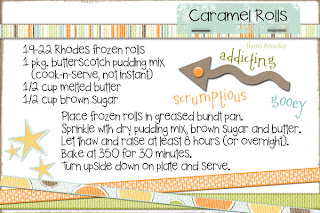 Caramel Rolls
from Brooke
19-22 Rhodes frozen rolls
1 pkg. butterscotch pudding mix
(cook-n-serve, not instant)
1/2 cup melted butter
1/2 cup brown sugar
addicting
scrumptious
gooey
Place frozen rolls in greased bundt pan.
Sprinkle with dry pudding mix, brown sugar and butter.
Let thaw and raise at least 8 hours (or overnight).
Bake at 350 for 30 minutes.
Turn upside down on plate and serve.